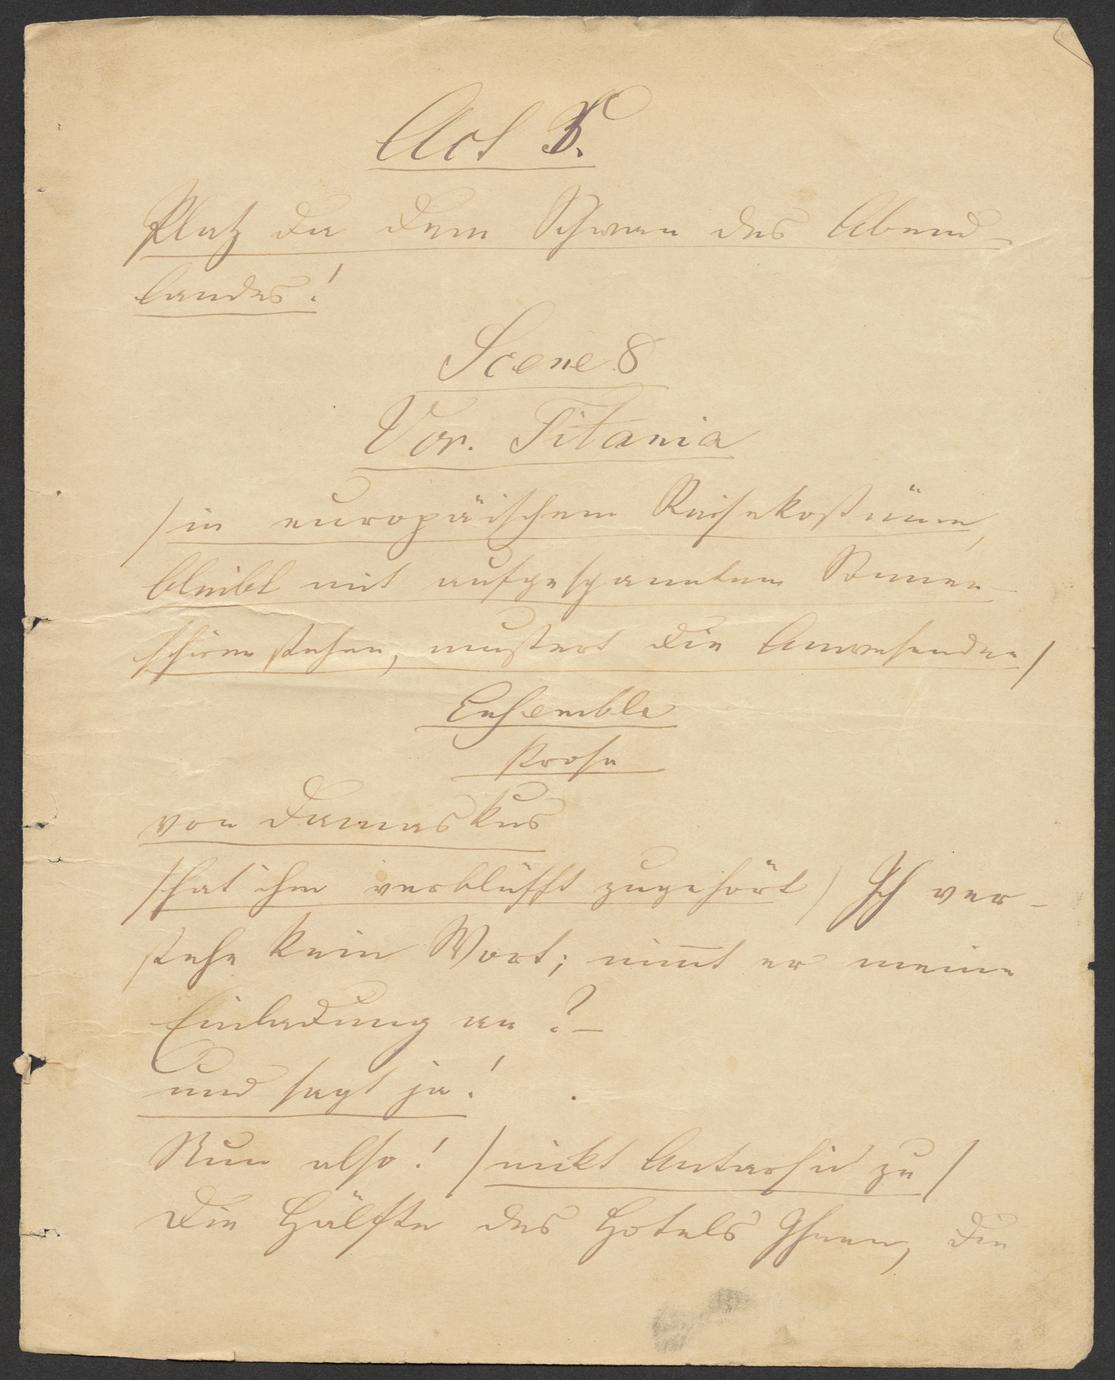 Act
Platz da dem Schwan des Abend-
landes!
Scene 8
Vor. Titania
/in europäischem Reisekostüme,
bleibt mit aufgespanntem Sonnen-
schirm stehen, mustert die Anwesenden/
Ensemble
Prosa
von Damaskus
/hat ihm verblüfft zugehört/ Ich ver-
stehe kein Wort; nim̄t er meine
Einladung an?-
und sagt ja!
Nun also! /nickt Antarsid zu/
Die Hälfte des Hotels Ihnen, die